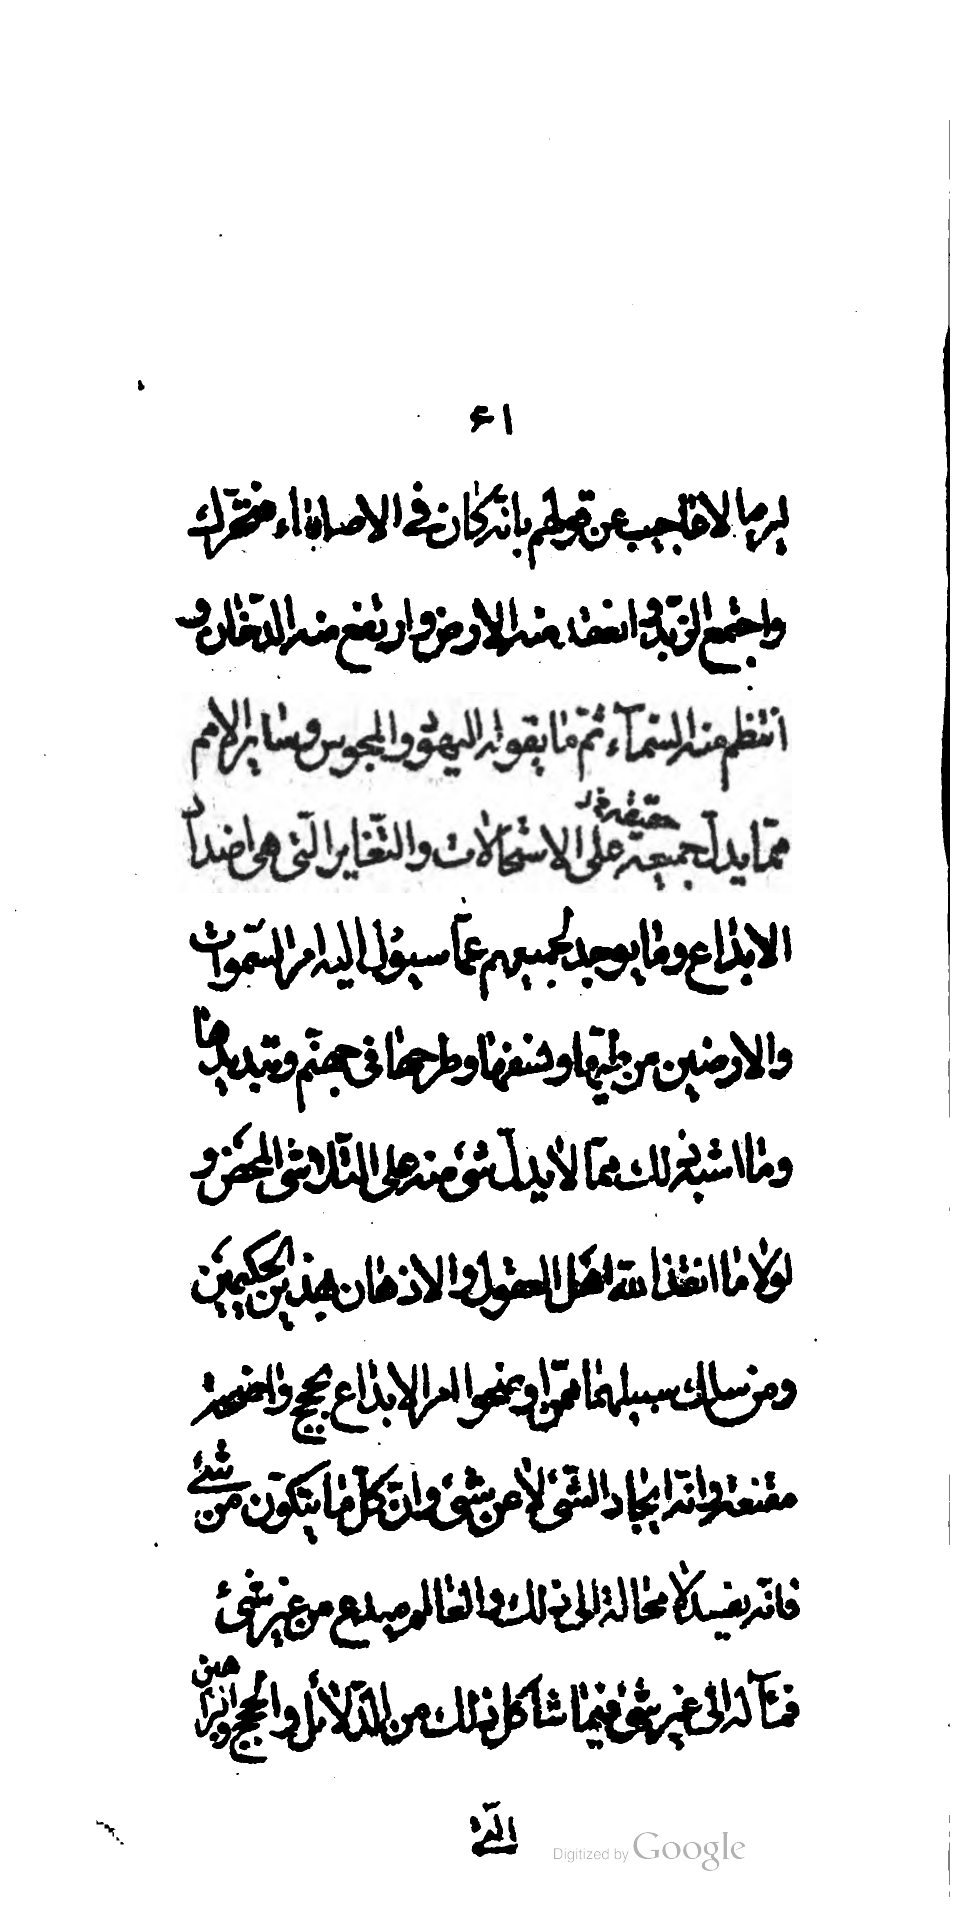 ٤١
ليرى الاعاجيب عن قولهم بانه كان في الاصل ماء فتحرك
واجتمع الزبد وانعقد منه الارض وارتفع منه الدخان و
انتظم منه السماء ثم ما يقوله اليهود والمجوس وساير الامم
مما يدل جميعه على الاستحالات والتغاير التى هى اضداد
حقيقة
الابداع وما يوجد لجميعهم عما سيؤل اليه امر السموات
والارضين من طيها ونسفها وطرحها فى جهنم وتبديلها
وما اشبه ذلك مما لا يدل شئ منه على التلاشى المحض و
لولا ما انقذ الله اهل العقول والاذهان بهذين الحكيمين
ومن سلك سبيلهما ممن اوضحوا امر الابداع بحجج واضحة
مقنعة وانه ايجاد الشئ لا عن شئ وان كل ما يتكون من شئ
فانه يفسد لا محالة الى ذلك والعالم مبدع من غير شئ
فمآله الى غير شئ فيما شاكل ذلك من الدلائل والحجج والبراهين
التى
Digitized by Google